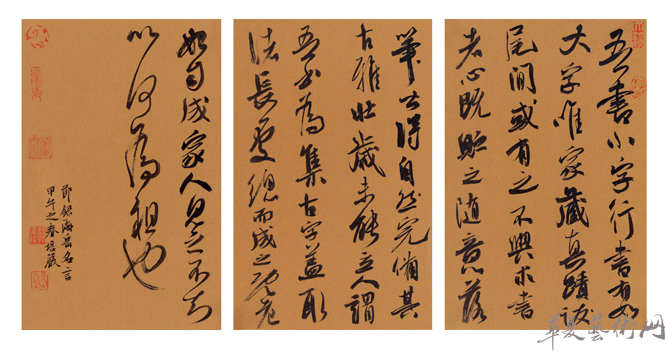 吾書小字行書有如
大字唯家藏真蹟跋
尾間或有之不與求書
者心既貯之隨意落
筆皆得自然完備其
古雅壯歲未能立人謂
吾書為集古字蓋取
諸長處總而成之既老
始自成家人見之不知
以何為祖也
節錄海岳名言
甲午之春
華夏藝術网